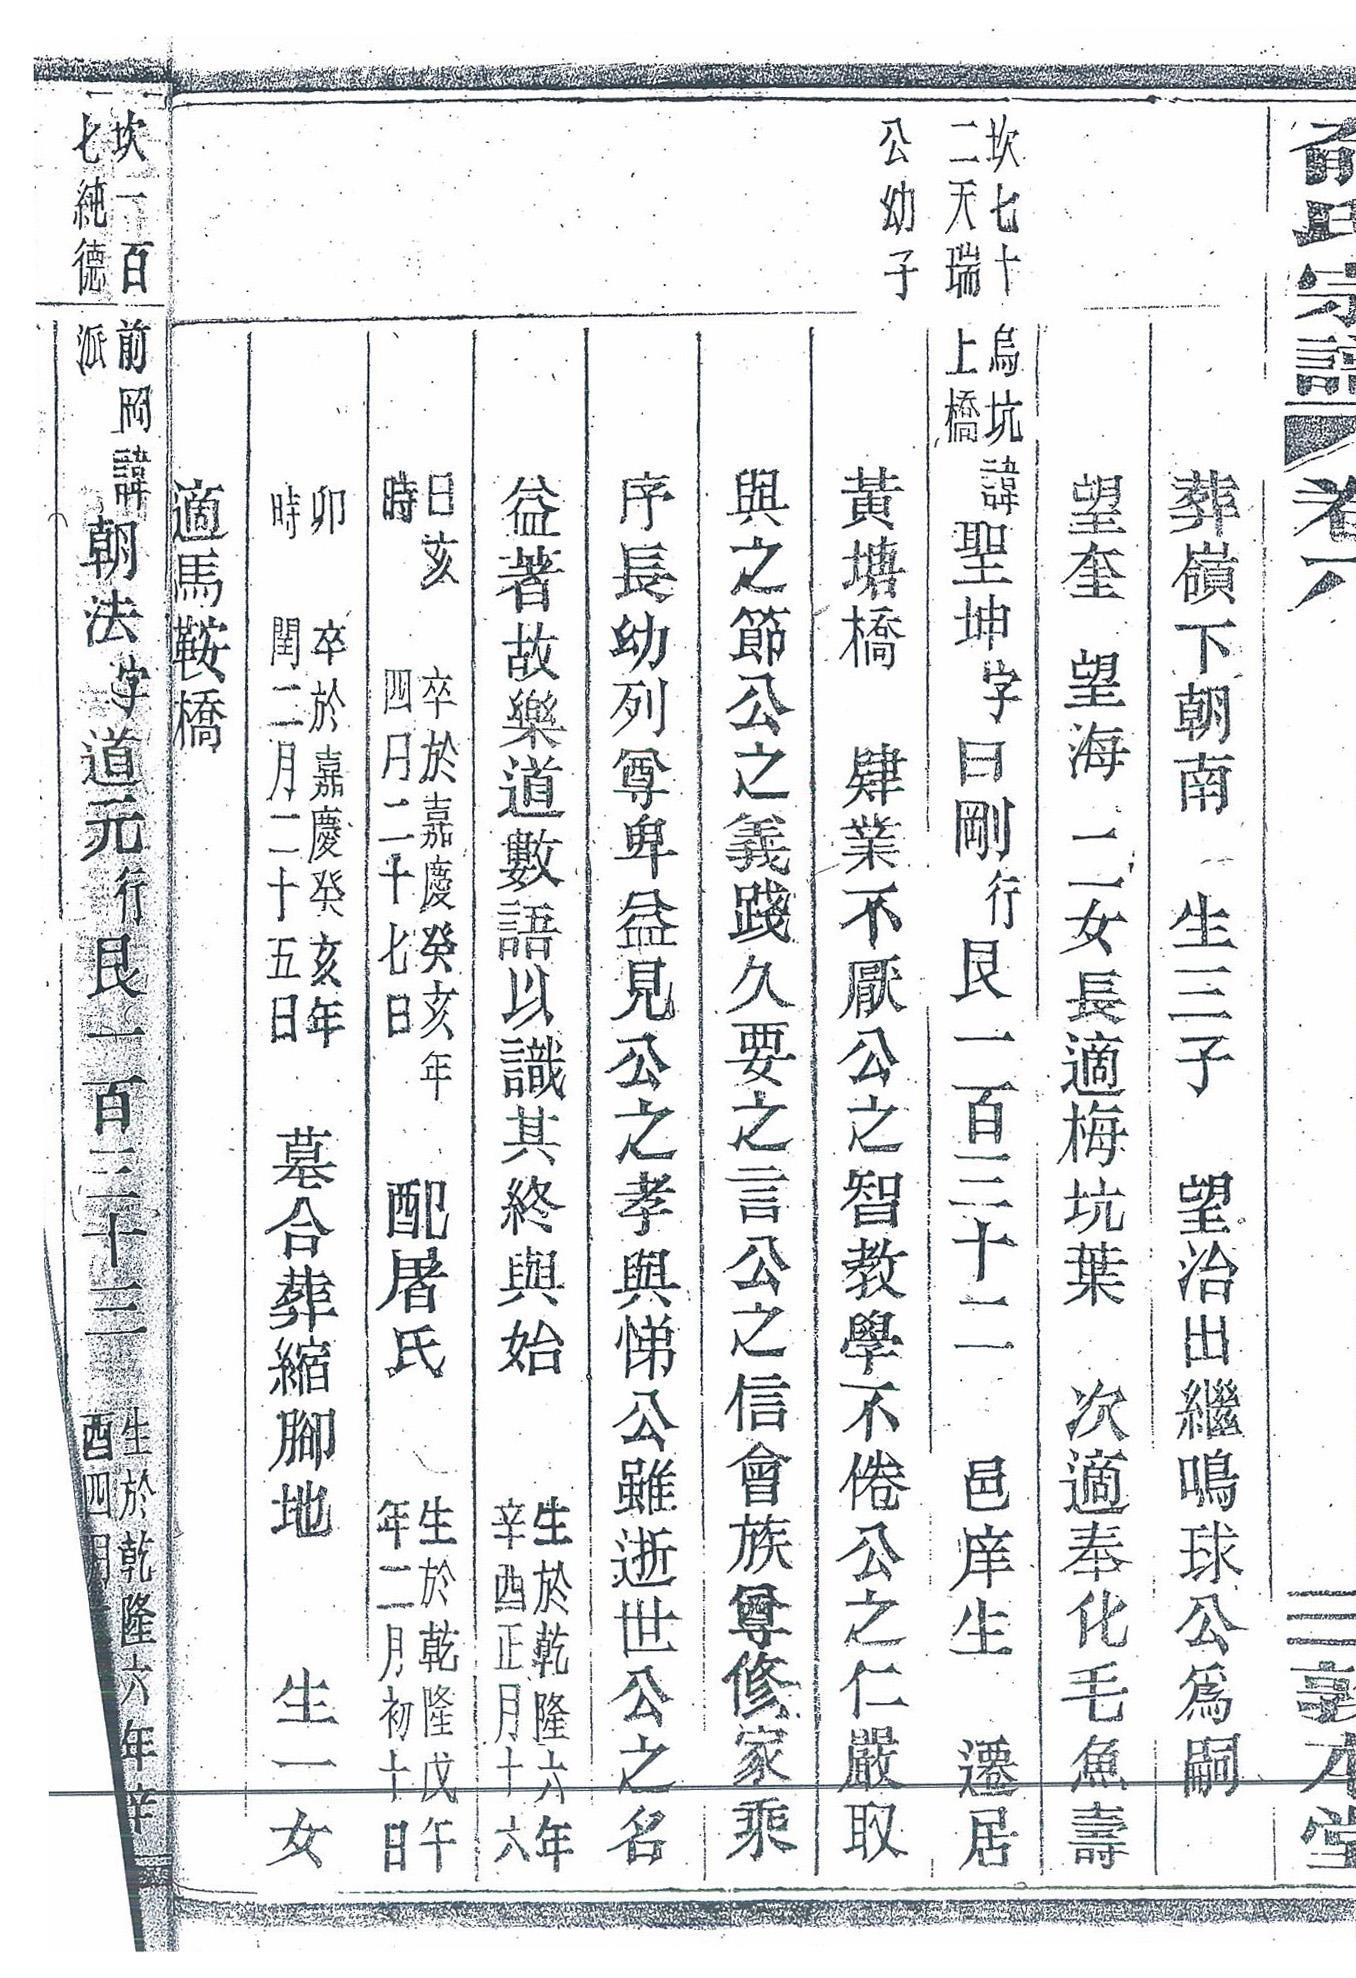 俞氏宗譜 卷六 敦本堂
葬嶺下朝南 生三子 望治出繼鳴球公爲嗣
望奎 望海 二女長適梅坑葉 次適奉化毛魚壽
坎七十二天瑞公幼子
烏坑上橋 諱聖坤字曰剛行艮一百三十二 邑庠生 遷居
黃塘橋 肄業不厭公之智教學不倦公之仁嚴取
與之節公之義踐久要之言公之信會族尊修家乘
序長幼列尊卑益見公之孝與悌公雖逝世公之名
益著故樂道數語以識其終與始 生於乾隆六年辛酉正月十六
日亥時 卒於嘉慶癸亥年四月二十七日 配屠氏 生於乾隆戊午年二月初十日
卯時 卒於嘉慶癸亥年閏二月二十五日 墓合葬縮腳地 生一女
適馬鞍橋
坎一百七純德
前岡派 諱朝法字道元行艮一百三十三 生於乾隆六年辛酉四月